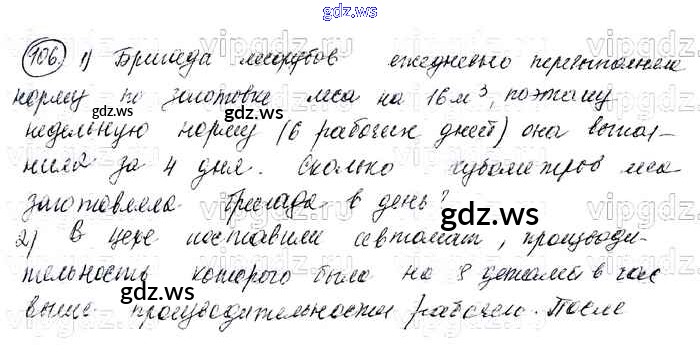 gdz.ws
106. 1) Бригада лесорубов ежедневно перевыполняла
норму по заготовке леса на 16 м³, поэтому
недельную норму (6 рабочих дней) она выпол-
нила за 4 дня. Сколько кубометров леса
заготовляла бригада в день?
2) В цехе поставили автомат, производи-
тельность которого была на 8 деталей в час
выше производительности рабочего. После